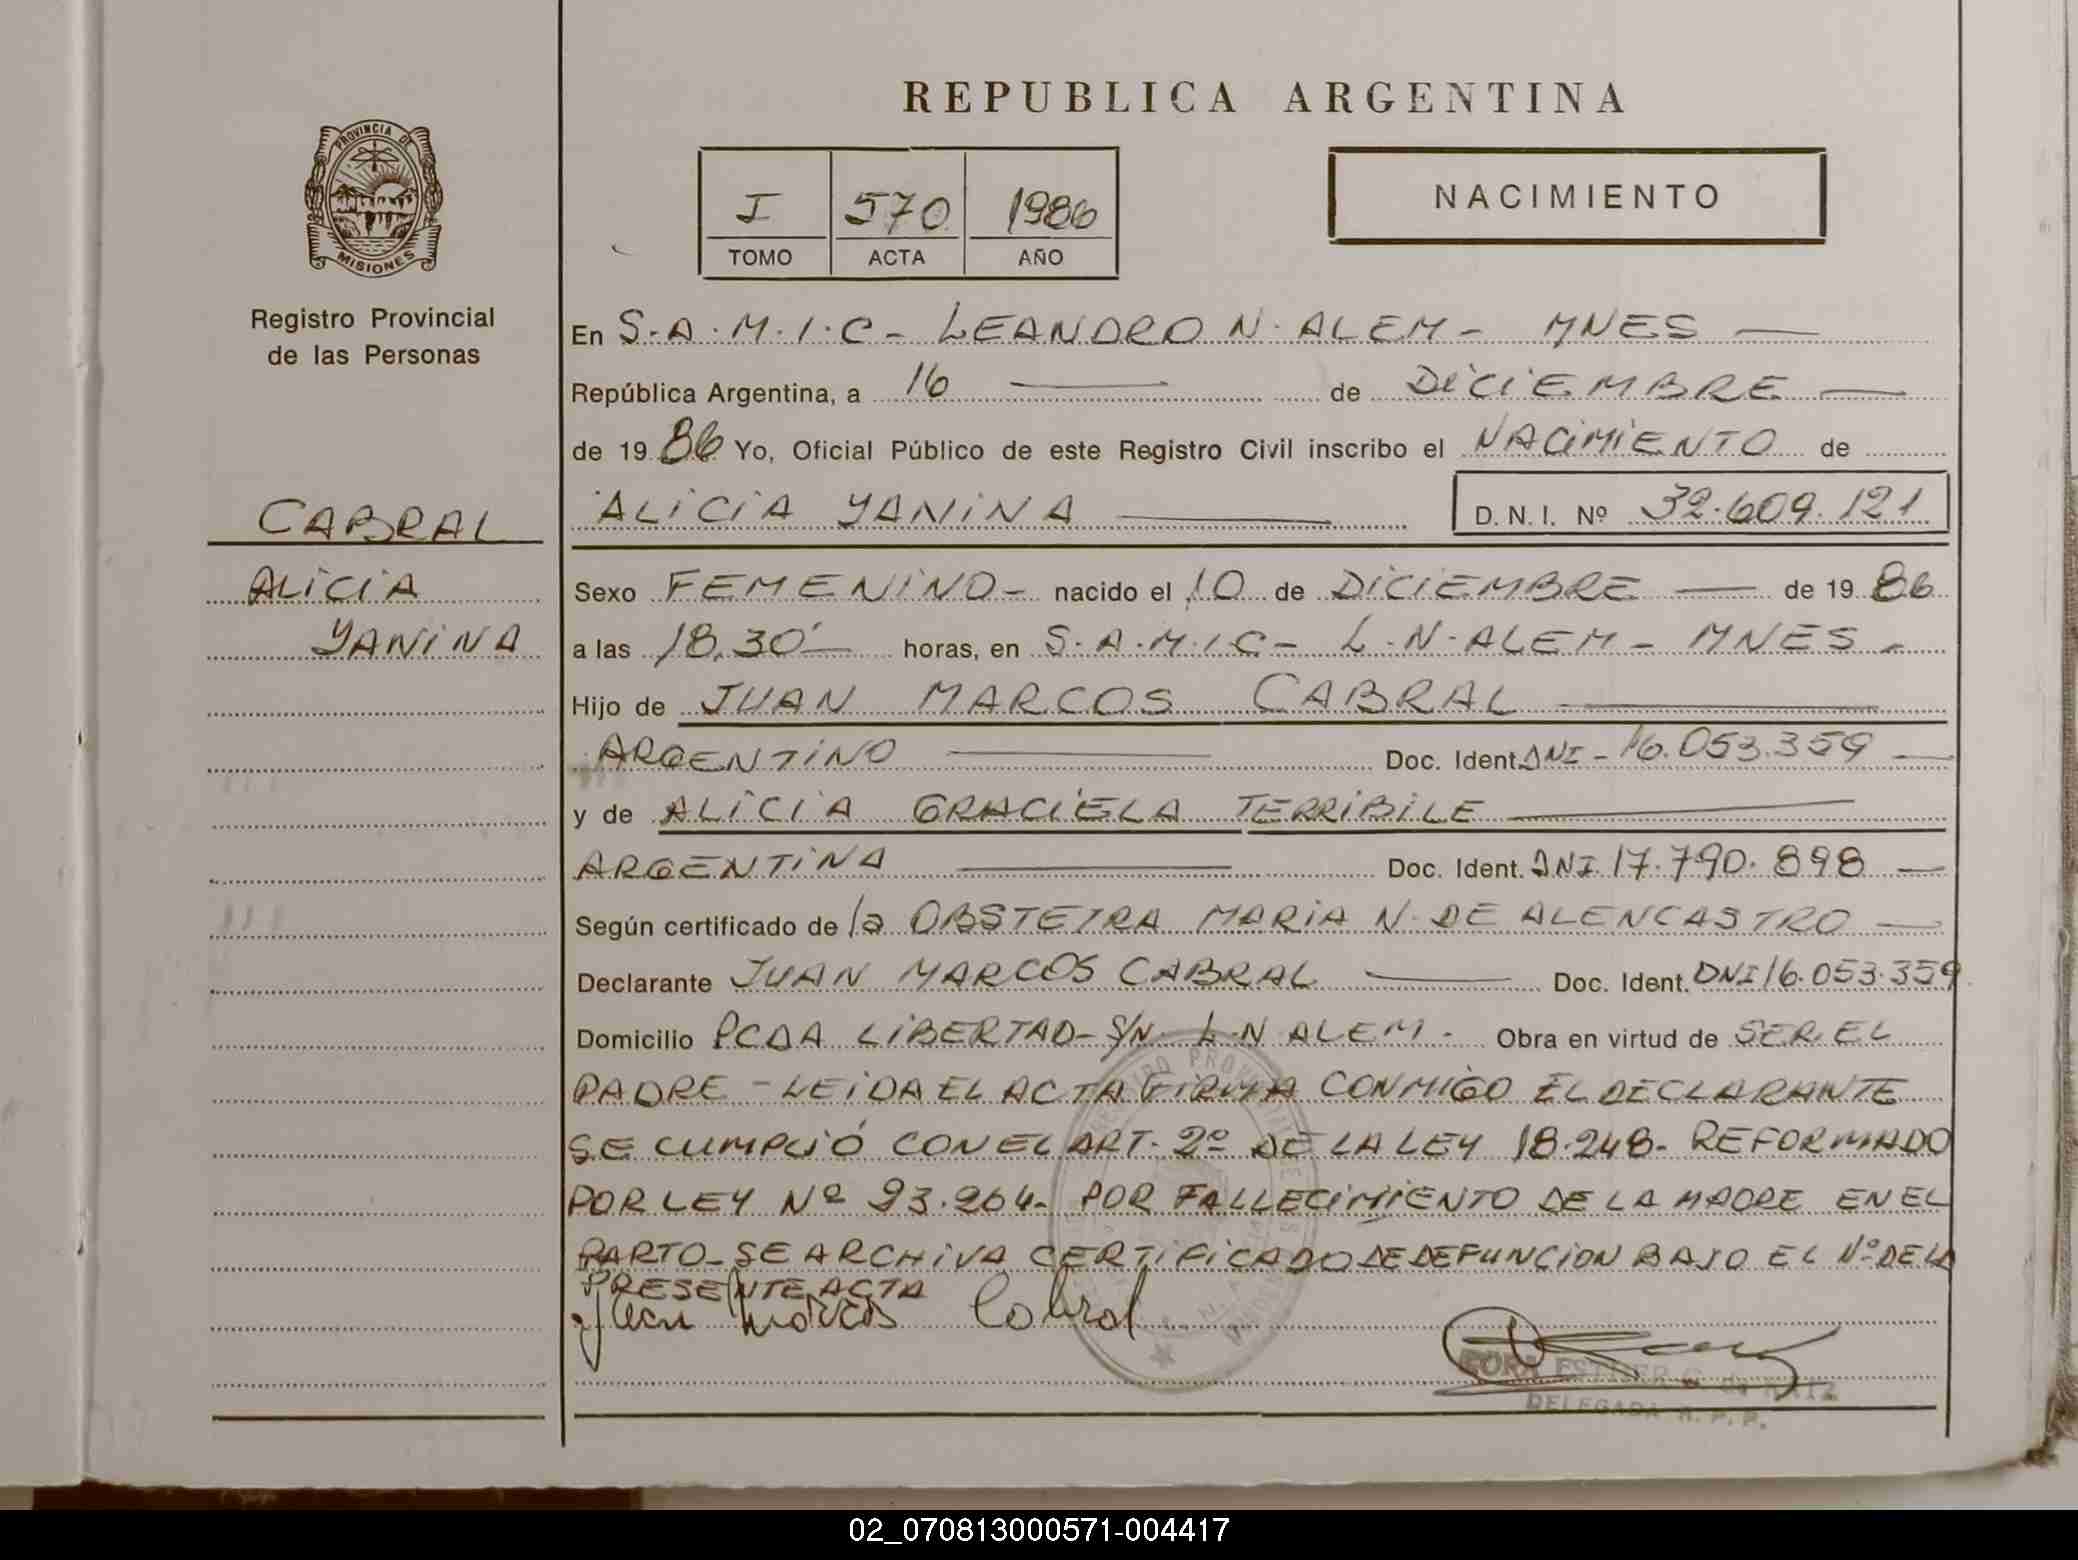 REPUBLICA ARGENTINA
PROVINCIA DE
MISIONES
Registro Provincial
de las Personas
I 570 1986
TOMO ACTA AÑO
NACIMIENTO
En S.A.M.I.C - LEANDRO N. ALEM - MNES
República Argentina, a 16 de DICIEMBRE
de 1986 Yo, Oficial Público de este Registro Civil inscribo el NACIMIENTO de
ALICIA YANINA D.N.I. Nº 32.609.121
CABRAL
ALICIA
YANINA
Sexo FEMENINO - nacido el 10 de DICIEMBRE de 1986
a las 18,30' horas, en S.A.M.I.C - L.N.ALEM - MNES -
Hijo de JUAN MARCOS CABRAL
ARGENTINO Doc. Ident. DNI - 16.053.359
y de ALICIA GRACIELA TERRIBILE
ARGENTINA Doc. Ident. DNI. 17.790.898
Según certificado de la OBSTETRA MARIA N. DE ALENCASTRO
Declarante JUAN MARCOS CABRAL Doc. Ident. DNI 16.053.359
Domicilio PCDA LIBERTAD - S/N. L.N ALEM - Obra en virtud de SER EL
PADRE - LEIDA EL ACTA FIRMA CONMIGO EL DECLARANTE
SE CUMPLIÓ CON EL ART. 2º DE LA LEY 18.248 - REFORMADO
POR LEY Nº 23.264 - POR FALLECIMIENTO DE LA MADRE EN EL
PARTO - SE ARCHIVA CERTIFICADO DE DEFUNCION BAJO EL Nº DE LA
PRESENTE ACTA
Juan Marcos Cabral
DORA ESTHER G. de
DELEGADA R. P. P.
02_070813000571-004417